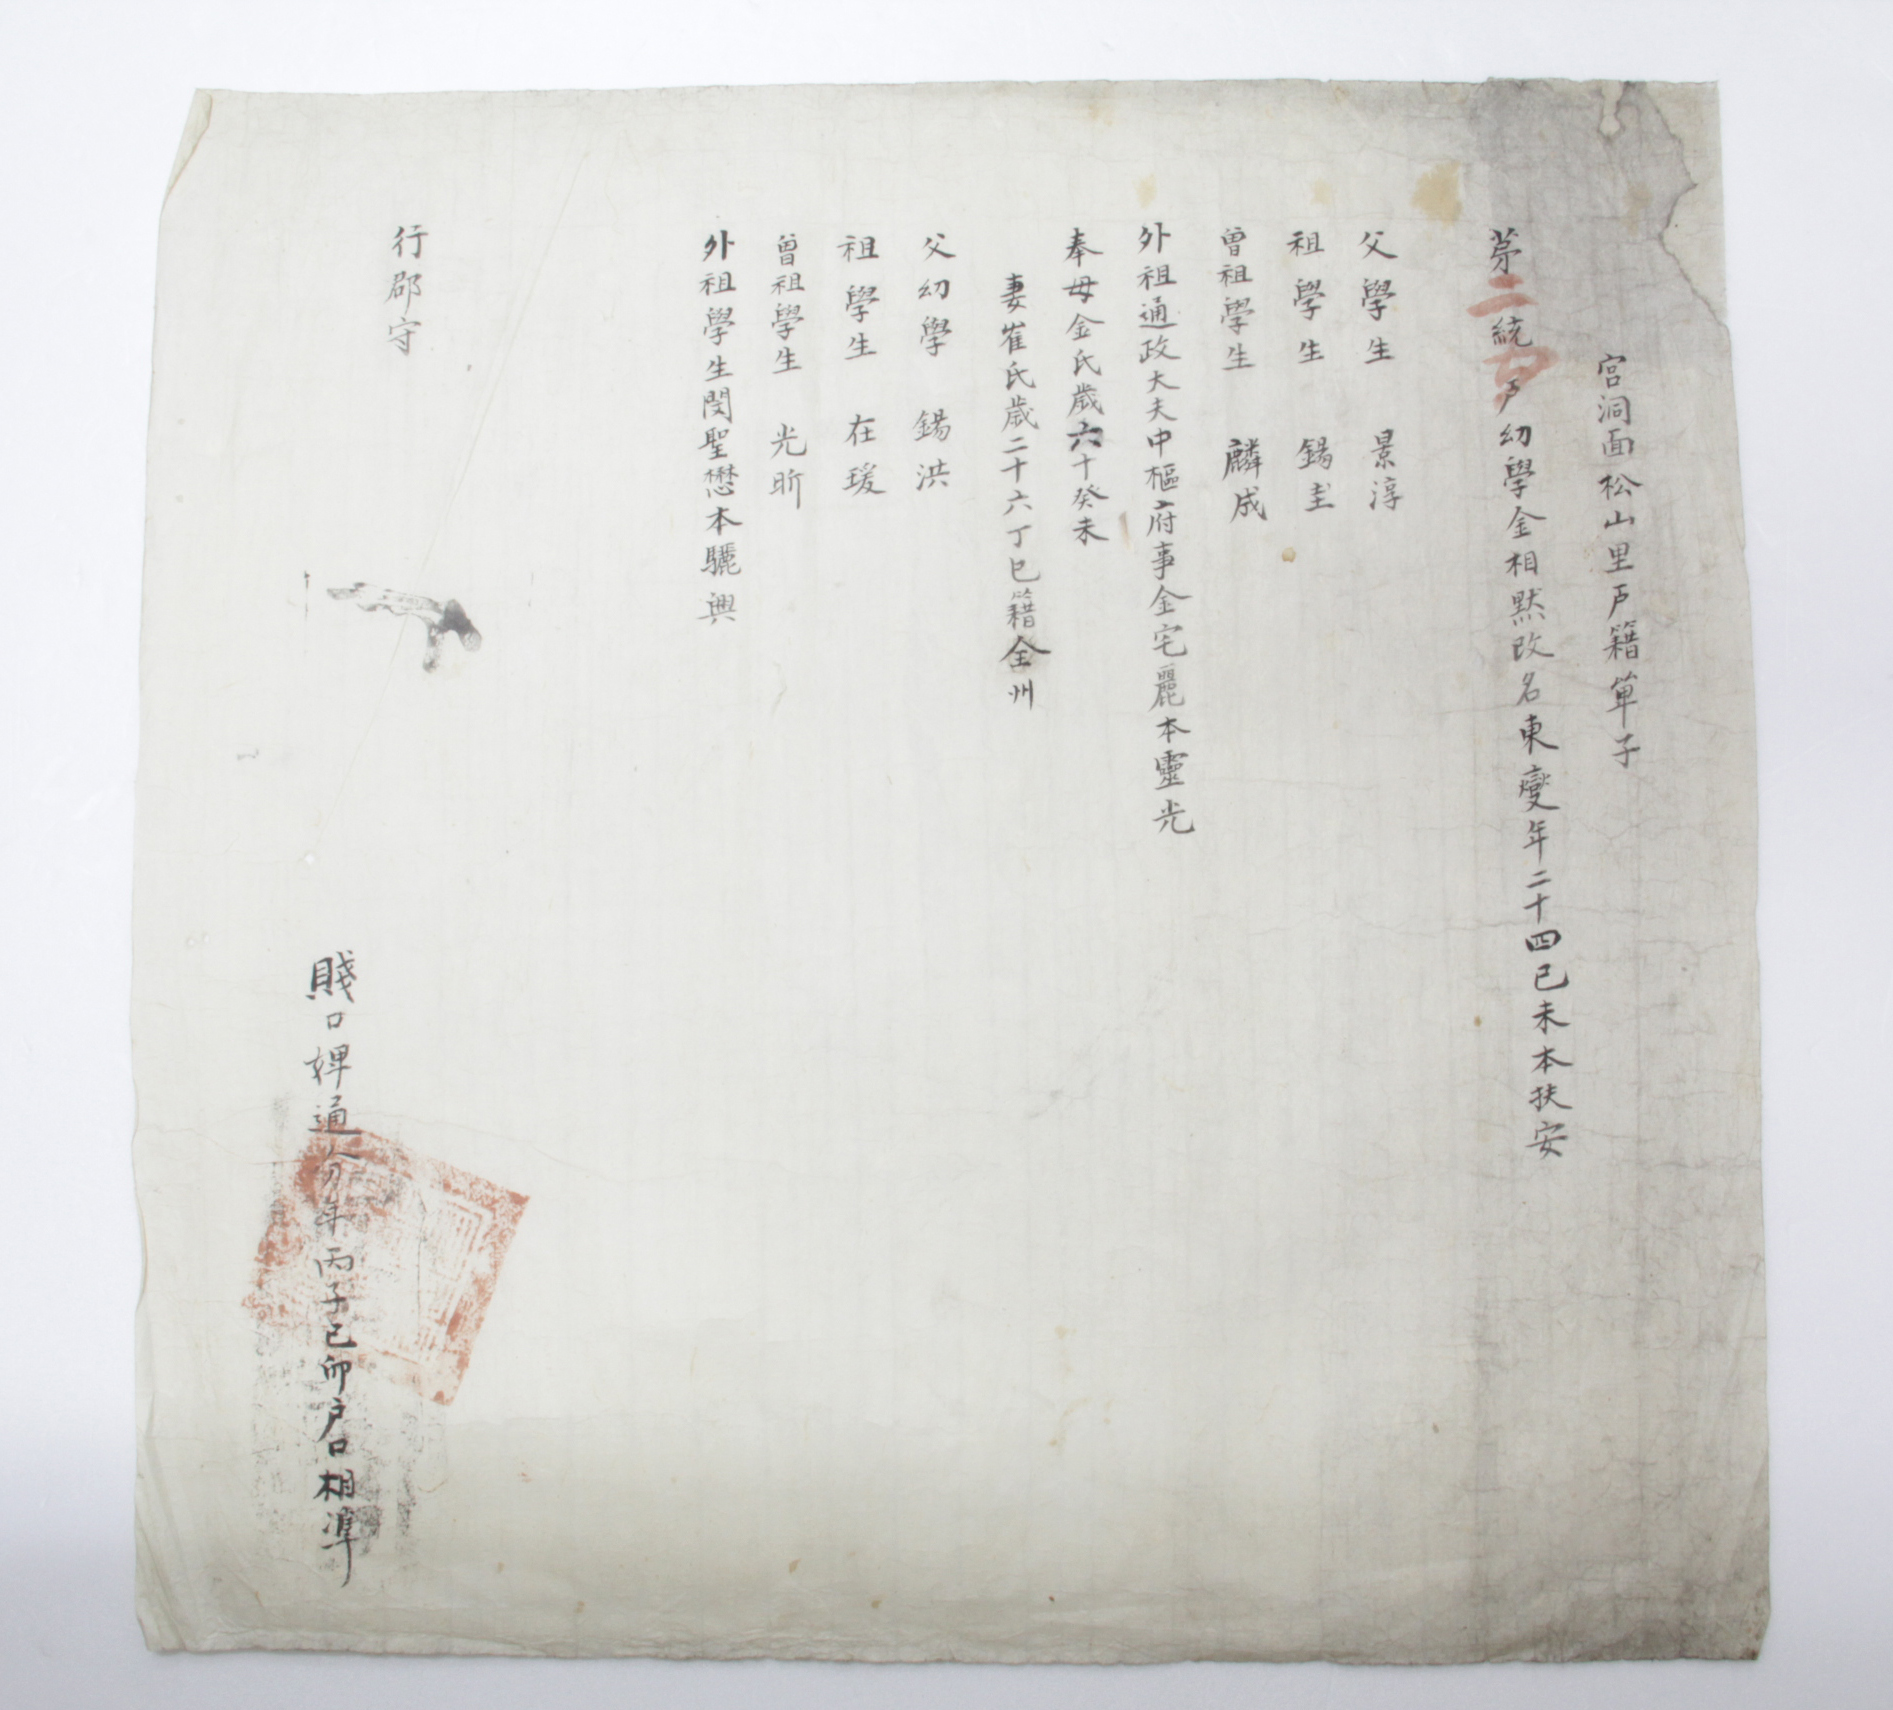 宮洞面松山里戶籍單子
第二統四戶幼學金相默改名東燮年二十四己未本扶安
父學生 景淳
祖學生 錫圭
曾祖學生 麟成
外祖通政大夫中樞府事金宅麗本靈光
奉母金氏歲六十癸未
妻崔氏歲二十六丁巳籍全州
父幼學 錫洪
祖學生 在瑗
曾祖學生 光昕
外祖學生閔聖懋本驪興
行郡守
賤口婢通分年丙子己卯戶口相準